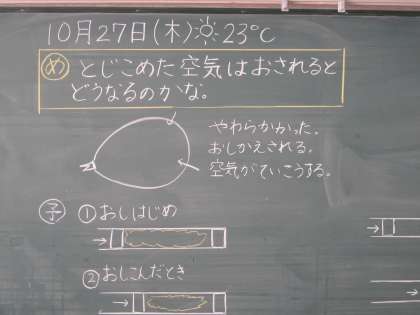 10月27日(木)☀23℃
め とじこめた空気はおされると
どうなるのかな。
やわらかかった。
おしかえされる。
空気がていこうする。
予 ①おしはじめ
②おしこんだとき